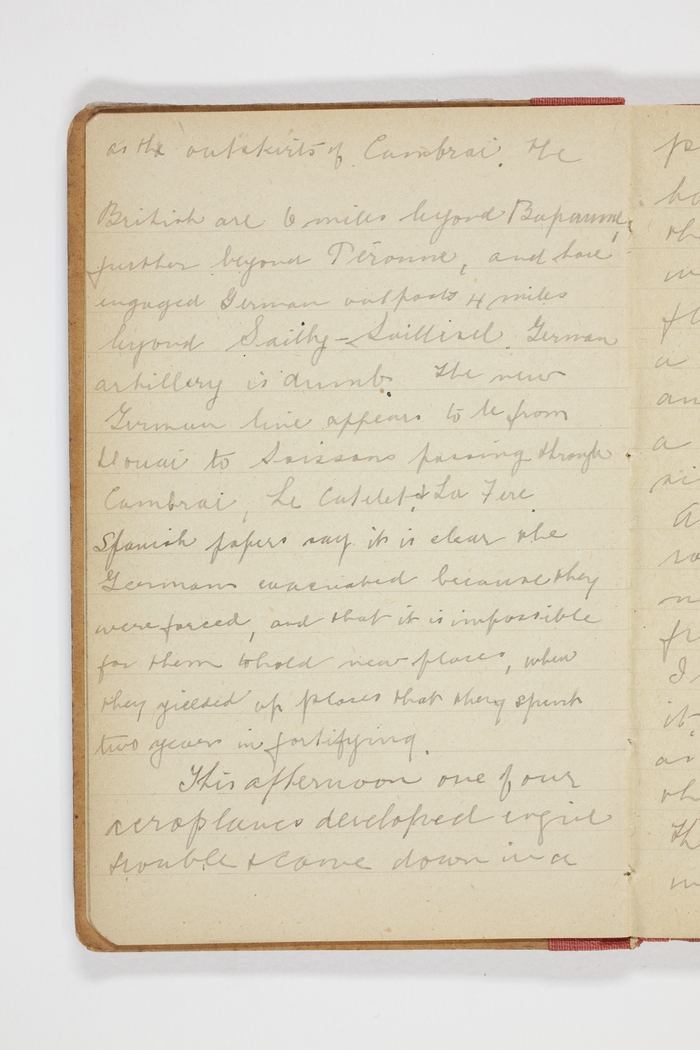 as the outskirts of Cambrai. The
British are 6 miles beyond Bapaume,
further beyond Péronne, and have
engaged German outposts 4 miles
beyond Sailly-Saillisel. German
artillery is dumb. The new
German line appears to be from
Douai to Soissons passing through
Cambrai, Le Catelet & La Fere
Spanish papers say it is clear the
Germans evacuated because they
were forced, and that it is impossible
for them to hold new places, when
they yielded up places that they spent
two years in fortifying.
This afternoon one of our
aeroplanes developed engine
trouble & came down in a
p
ha
th
in
fl
a
an
a
si
A
ro
n
fr
I
it
as
th
Th
m